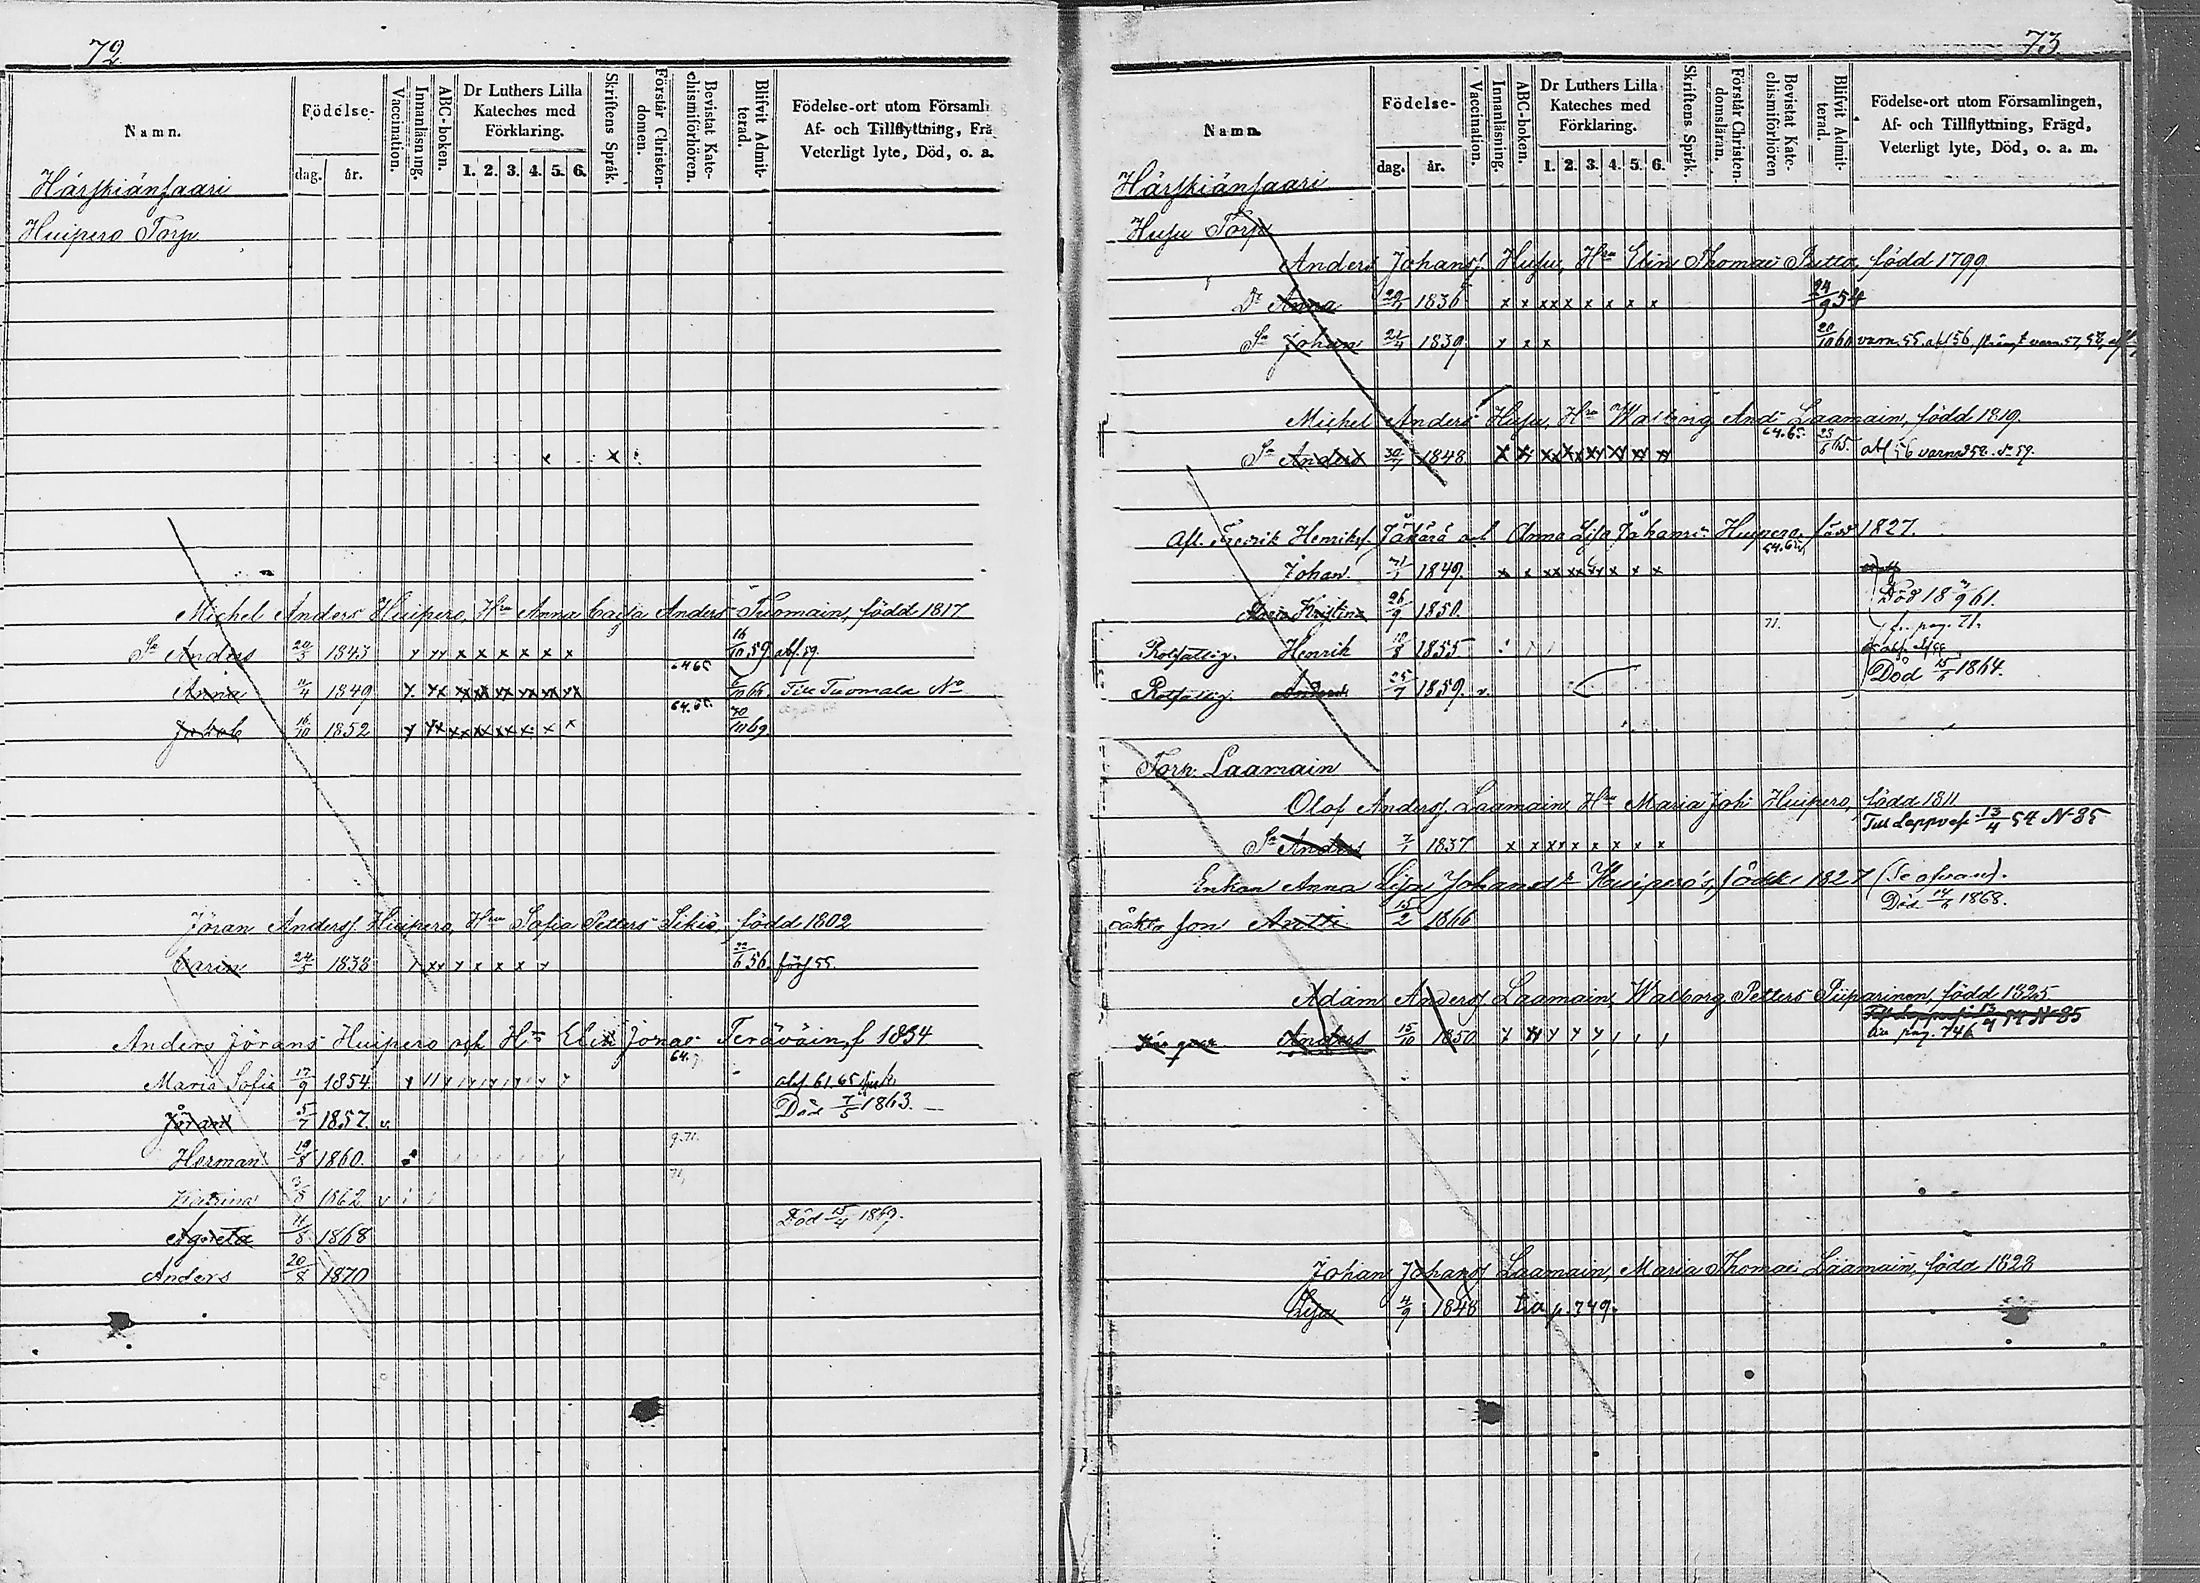 72
Namn.
Födelse-
dag. år.
Vaccination.
Innanläsning.
ABC-boken.
Dr Luthers Lilla Kateches med Förklaring.
1. 2. 3. 4. 5. 6.
Skriftens Språk.
Förstår Christendomen.
Bevistat Katechismiförhören.
Blifvit Admitterad.
Födelse-ort utom Församli
Af- och Tillflyttning, Frä
Veterligt lyte, Död, o. a.
Härskiänsaari
Huipero Torp
Michel Anders Huipero, Hru Anna Caisa Anders Tuomain, född 1817.
Sn Anders 20/3 1843 16/10 59 abs. 59.
Anna 11/4 1849 64 65 Till Tuomala No
Jakob 16/10 1852 64. 65. 69
Jöran Anders. Huipero, Hru Sofia Petters Sikiö, född 1802
Carin 24/5 1838 22/6 56. förs 55.
Anders Jörans Huipero och Hru Elin Jonas Teräväin f 1834
Maria Sofia 17/9 1854. 64. abs 61. 65 sjuk
Jöran 5/7 1857. v. Död 7/5 1863.
Herman 19/8 1860. 9.71.
Katrina 3/8 1862 v 71,
Agneta 11/8 1868 Död 15/4 1869.
Anders 20/8 1870
73
Namn.
Födelse-
dag. år.
Vaccination.
Innanläsning.
ABC-boken.
Dr Luthers Lilla Kateches med Förklaring.
1. 2. 3. 4. 5. 6.
Skriftens Språk.
Förstår Christendomsläran.
Bevistat Katechismiförhören
Blifvit Admitterad.
Födelse-ort utom Församlingen,
Af- och Tillflyttning, Frägd,
Veterligt lyte, Död, o. a. m.
Härskiänsaari
Husu Torp
Anders Johans. Husu, Hru Elin Thomas Putto, född 1799
Dr Anna 1836 24/9 54
Sn Johan 21/4 1839 20/10 60 varn. 55. abs 56, varn 57, 58,
Michel Anders Husu, Hru Walborg Anders Laamain, född 1819.
Sn Anders 30/7 1848 64. 65. 23/6 65. abs 56 varnad 58. 59.
Afl. Fredrik Henriks. och Anna Lisa Johans Huipero, född 1827.
Johan 1849. 64. 65.
Maria Kristina 26/9 1850. Död 18 9 61.
Henrik 10/8 1855. 71. f. pag. 71.
Anders 25/7 1859. v. Död 15 1864.
Torp Laamain
Olof Anders. Laamain, Hru Maria Joh. Huipero, född 1811
Sn Anders 7/1 1837 Till Lappvesi 13/4 54 N 85
Enkan Anna Lisa Johansdr Huipero's, född 1827 (Se ofvan).
oäkta son Antti 15/2 1866 Död 1868.
Adam Anders Laamain, Walborg Petters Piiparinen, född 1825
Anders 15/10 1850 Till Lappvesi N 85 pag. 746
Johan Johans Laamain, Maria Thomas Laamain, född 1823
Lisa 4/9 1848 p. 749.